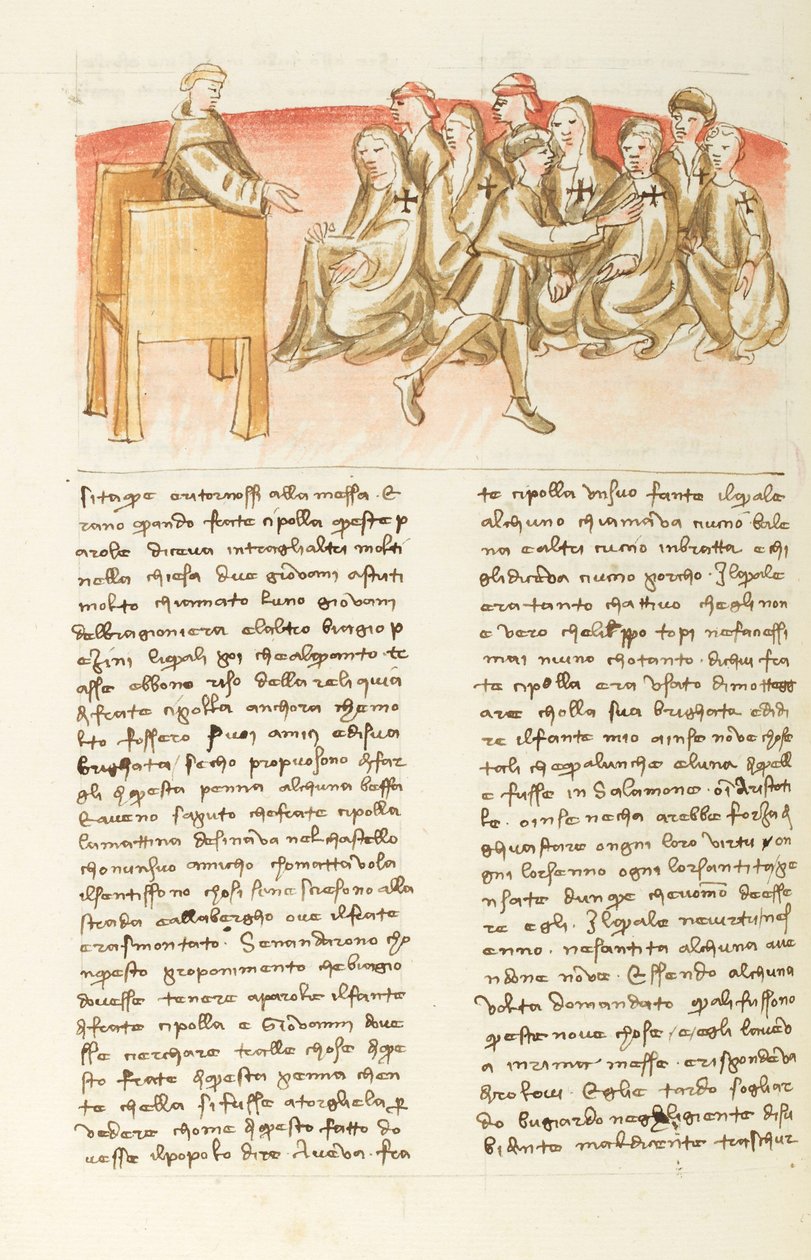 sitaqe eritornossi alla messa. E
rano quando frate cipolla queste p
arole diceva intraglialtri molti
nella chiesa due giovani astuti
molto chiamato luno giovani
delbragioniera elaltro biagio p
ezini liquali poi chealquanto te
asse ebbono riso della reliquia
di frate cipolla anchora chemo
lto fossero suoi amici edisua
brighata / secho propuosono difar
gli di questa penna alchuna beffa
Eaveno saputo chefrate cipolla
lamattina desinava nel chastello
chonunsuo amicho chomattavola
ilsentissono chosi sene sciesono alla
strada eallabergho ove ilfrate
erasmontato. Senandarono cho
nquesto proponimento chebiagio
dovesse tenere aparole ilfante
di frate cipolla e Giovanni dove
sse cierchare tralle chose di que
sto frate di questa penna chen
te chella si fusse atorgliela per
vedere chome di questo fatto do
vesse ilpopolo dire. Aveva. fra
te cipolla unsuo fante ilquale
alchuno chiamava cuccio bale
na e altri cuccio inbratta e chi
glidiceva cuccio porcho. Ilquale
era tanto chattivo chegli non
e vero chelippo topi nefacessi
mai niuno chotanto. dichui fra
te cipolla era usato dimottegg
are cholla sua brighata edidi
re ilfante mio ainse nove chose
tali chequalunche eluna di quell
e fusse in Salamone. o in Aristoti
le. o in senecha arebbe forza di
ghuastare ongni loro virtu / on
gni lorsenno ogni lorsantita / pe
nsate dunque chevomo deesse
re egli. Ilquale nevirtu / nes
enno. nesantita alchuna ave
ndone nove. Essendo alchuna
volta domandato quali fussono
queste nove chose / e / egli lavev
a inrima messe. erispondeva
dirolovi. Eglie tardo sogliar
do bugiardo neghligiente disu
bidente maldicente traschur